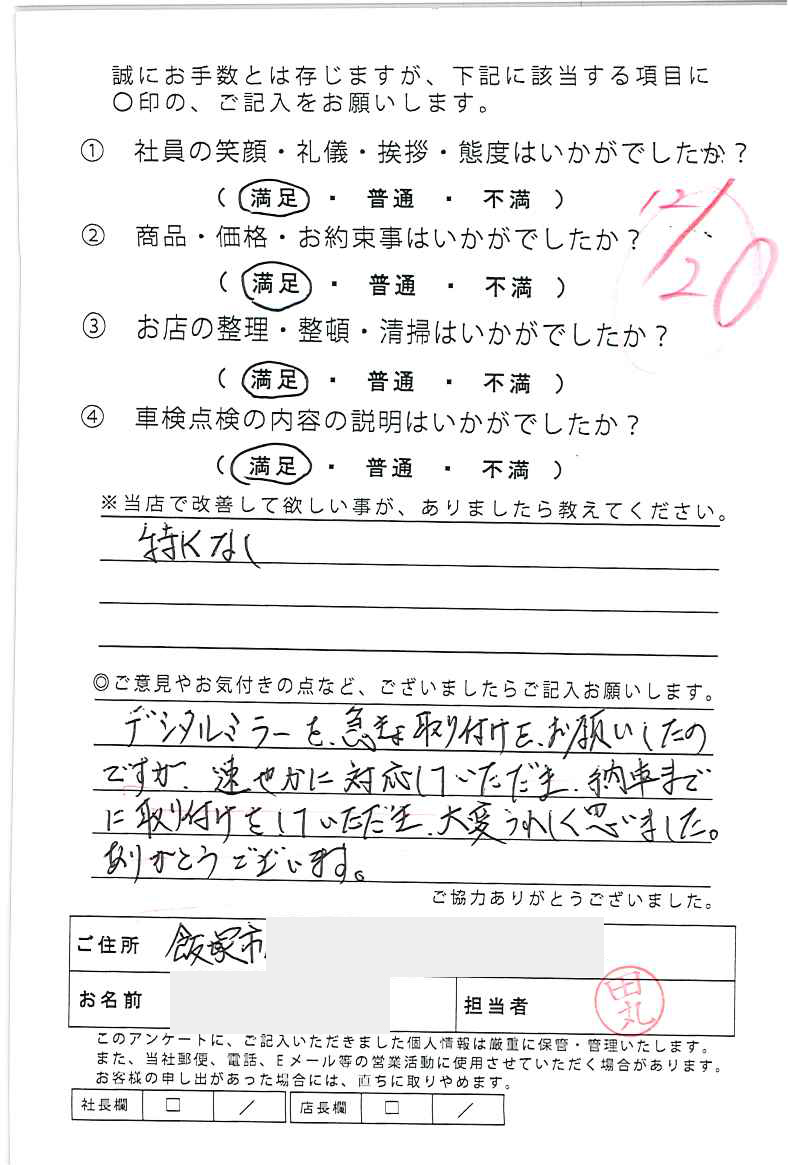 誠にお手数とは存じますが、下記に該当する項目に
〇印の、ご記入をお願いします。
① 社員の笑顔・礼儀・挨拶・態度はいかがでしたか？
（ 満足 ・ 普通 ・ 不満 ）
12/20
② 商品・価格・お約束事はいかがでしたか？
（ 満足 ・ 普通 ・ 不満 ）
③ お店の整理・整頓・清掃はいかがでしたか？
（ 満足 ・ 普通 ・ 不満 ）
④ 車検点検の内容の説明はいかがでしたか？
（ 満足 ・ 普通 ・ 不満 ）
※当店で改善して欲しい事が、ありましたら教えてください。
特になし
◎ご意見やお気付きの点など、ございましたらご記入お願いします。
デジタルミラーを、急きょ取り付けを、お願いしたの
ですが、速やかに対応していただき、納車まで
に取り付けをしていただき、大変うれしく思いました。
ありがとうございます。
ご協力ありがとうございました。
ご住所 飯塚市
お名前 担当者
このアンケートに、ご記入いただきました個人情報は厳重に保管・管理いたします。
また、当社郵便、電話、Eメール等の営業活動に使用させていただく場合があります。
お客様の申し出があった場合には、直ちに取りやめます。
社長欄 □ ／ 店長欄 □ ／